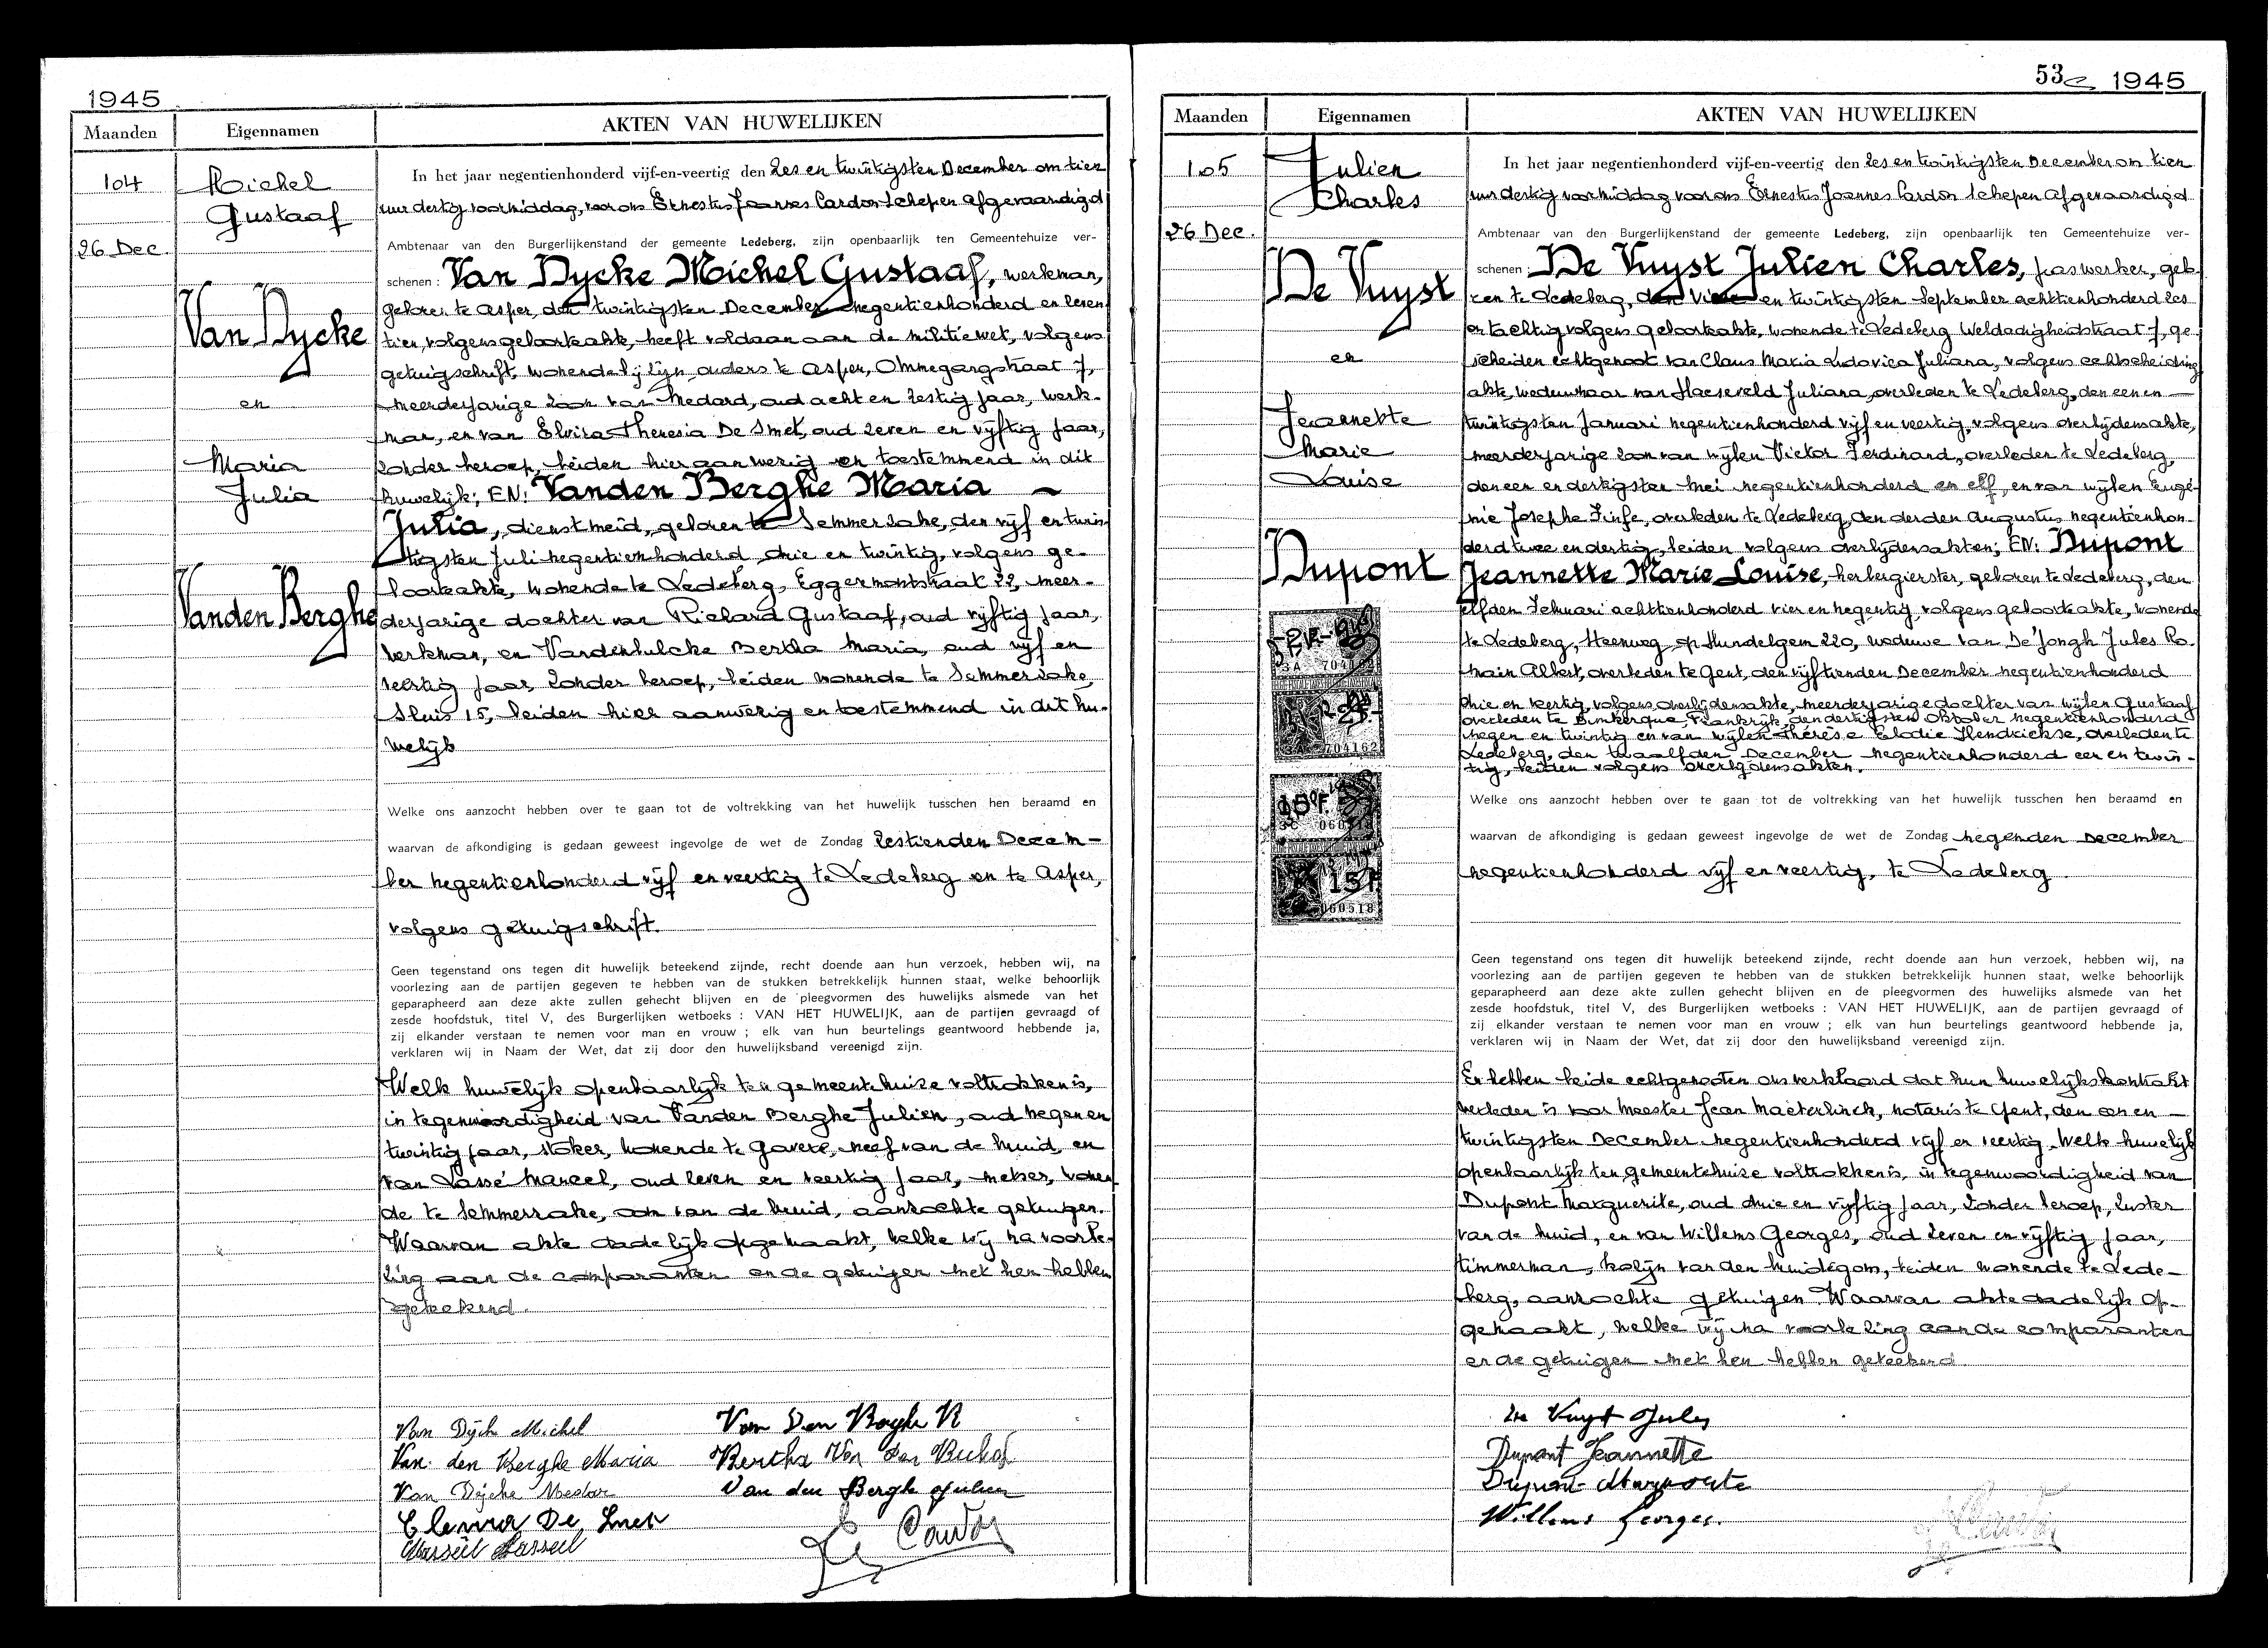 1945
Maanden
Eigennamen
AKTEN VAN HUWELIJKEN
104
26 Dec.
Michel
Gustaaf
Van Dycke
en
Maria
Julia
Vanden Berghe
In het jaar negentienhonderd vijf-en-veertig den zes en twintigsten December om tien
uur dertig voormiddag, voor ons Ernestus Joannes Cardon Schepen afgevaardigd
Ambtenaar van den Burgerlijkenstand der gemeente Ledeberg, zijn openbaarlijk ten Gemeentehuize ver-
schenen : Van Dycke Michel Gustaaf, werkman,
geboren te Asper, den twintigsten December negentienhonderd en zeven
tien, volgens geboorteakte, heeft voldaan aan de militiewet, volgens
getuigschrift, wonende bij zijn ouders te Asper, Ommegangstraat 7,
meerderjarige zoon van Medard, oud acht en zestig jaar, werk-
man, en van Elvira Theresia De Smet, oud zeven en vijftig jaar,
zonder beroep, beiden hier aanwezig en toestemmend in dit
huwelijk; EN: Vanden Berghe Maria
Julia, dienstmeid, geboren te Semmerzake, den vijf en twin
tigsten Juli negentienhonderd drie en twintig, volgens ge-
boorteakte, wonende te Ledeberg, Eggermontstraat 22, meer-
derjarige dochter van Richard Gustaaf, oud vijftig jaar,
werkman, en Vandenhulcke Bertha Maria, oud vijf en
veertig jaar, zonder beroep, beiden wonende te Semmerzake,
Sluis 15, beiden hier aanwezig en toestemmend in dit hu-
welijk
Welke ons aanzocht hebben over te gaan tot de voltrekking van het huwelijk tusschen hen beraamd en
waarvan de afkondiging is gedaan geweest ingevolge de wet de Zondag zestienden Decem-
ber negentienhonderd vijf en veertig te Ledeberg en te Asper,
volgens getuigschrift.
Geen tegenstand ons tegen dit huwelijk beteekend zijnde, recht doende aan hun verzoek, hebben wij, na
voorlezing aan de partijen gegeven te hebben van de stukken betrekkelijk hunnen staat, welke behoorlijk
geparapheerd aan deze akte zullen gehecht blijven en de pleegvormen des huwelijks alsmede van het
zesde hoofdstuk, titel V, des Burgerlijken wetboeks : VAN HET HUWELIJK, aan de partijen gevraagd of
zij elkander verstaan te nemen voor man en vrouw ; elk van hun beurtelings geantwoord hebbende ja,
verklaren wij in Naam der Wet, dat zij door den huwelijksband vereenigd zijn.
Welk huwelijk openbaarlijk ten gemeentehuize voltrokken is,
in tegenwoordigheid van Vanden Berghe Julien, oud negen en
twintig jaar, stoker, wonende te Gavere, neef van de bruid, en
van Lassé Marcel, oud zeven en veertig jaar, metser, wonen
de te Semmerzake, oom van de bruid, aanzochte getuigen.
Waarvan akte dadelijk opgemaakt, welke wij na voorle-
zing aan de comparanten en de getuigen met hen hebben
geteekend.
Van Dijcke Michel
Van den Berghe Maria
Van Dijcke
De Smet
Van Den Berghe R
Bertha
Van den Berghe Julien
Cardon
53 1945
Maanden
Eigennamen
AKTEN VAN HUWELIJKEN
105
26 Dec.
Julien
Charles
De Vuyst
en
Jeannette
Marie
Louise
Dupont
704162
15F
060518
In het jaar negentienhonderd vijf-en-veertig den zes en twintigsten December om tien
uur dertig voormiddag voor ons Ernestus Joannes Cardon Schepen afgevaardigd
Ambtenaar van den Burgerlijkenstand der gemeente Ledeberg, zijn openbaarlijk ten Gemeentehuize ver-
schenen : De Vuyst Julien Charles, gaswerker, gebo
ren te Ledeberg, den vier en twintigsten September achttienhonderd zes
en tachtig volgens geboorteakte, wonende te Ledeberg Weldadigheidstraat 7, ge-
scheiden echtgenoot van Claus Maria Ludovica Juliana, volgens echtscheiding
akte, weduwnaar van Haeseveld Juliana, overleden te Ledeberg, den een en
twintigsten Januari negentienhonderd vijf en veertig, volgens overlijdensakte,
meerderjarige zoon van wijlen Victor Ferdinand, overleden te Ledeberg,
den een en dertigsten Mei negentienhonderd en elf, en van wijlen Eugé-
nie Josephe Finfe, overleden te Ledeberg, den derden Augustus negentienhon-
derd twee en dertig, beiden volgens overlijdensakten; EN: Dupont
Jeannette Marie Louise, herbergierster, geboren te Ledeberg, den
elfden Februari achttienhonderd vier en negentig volgens geboorteakte, wonende
te Ledeberg, Steenweg op Hundelgem 220, weduwe van De Jongh Jules Ro-
main Albert, overleden te Gent, den vijftienden December negentienhonderd
drie en veertig, volgens overlijdensakte, meerderjarige dochter van wijlen Gustaaf
overleden te Dunkerque, Frankrijk, den dertigsten Oktober negentienhonderd
negen en twintig en van wijlen Thérèse Elodie Hendrickse, overleden te
Ledeberg, den twaalfden December negentienhonderd een en twin-
tig, beiden volgens overlijdensakten.
Welke ons aanzocht hebben over te gaan tot de voltrekking van het huwelijk tusschen hen beraamd en
waarvan de afkondiging is gedaan geweest ingevolge de wet de Zondag negenden December
negentienhonderd vijf en veertig, te Ledeberg
Geen tegenstand ons tegen dit huwelijk beteekend zijnde, recht doende aan hun verzoek, hebben wij, na
voorlezing aan de partijen gegeven te hebben van de stukken betrekkelijk hunnen staat, welke behoorlijk
geparapheerd aan deze akte zullen gehecht blijven en de pleegvormen des huwelijks alsmede van het
zesde hoofdstuk, titel V, des Burgerlijken wetboeks : VAN HET HUWELIJK, aan de partijen gevraagd of
zij elkander verstaan te nemen voor man en vrouw ; elk van hun beurtelings geantwoord hebbende ja,
verklaren wij in Naam der Wet, dat zij door den huwelijksband vereenigd zijn.
En hebben beide echtgenooten ons verklaard dat hun huwelijkskontrakt
verleden is voor Meester Jean Maeterlinck, notaris te Gent, den een en
twintigsten December negentienhonderd vijf en veertig. Welk huwelijk
openbaarlijk ten gemeentehuize voltrokken is, in tegenwoordigheid van
Dupont Marguerite, oud drie en vijftig jaar, zonder beroep, zuster
van de bruid, en van Willems Georges, oud zeven en vijftig jaar,
timmerman, kozijn van den bruidegom, beiden wonende te Lede-
berg, aanzochte getuigen. Waarvan akte dadelijk op-
gemaakt, welke wij na voorlezing aan de comparanten
en de getuigen met hen hebben geteekend
De Vuyst Jules
Dupont Jeannette
Dupont Marguerite
Willems Georges.